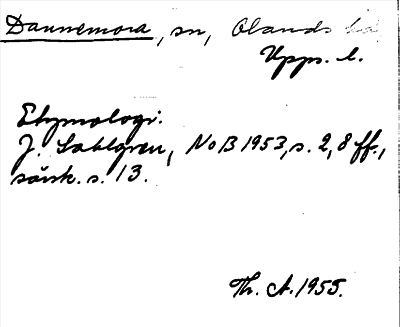 Dannemora, sn, Olands hd
Upps. l.
Etymologi.
J. Sahlgren, NoB 1953, s. 2, 8 ff.,
särsk. s. 13.
Th. A. 1955.